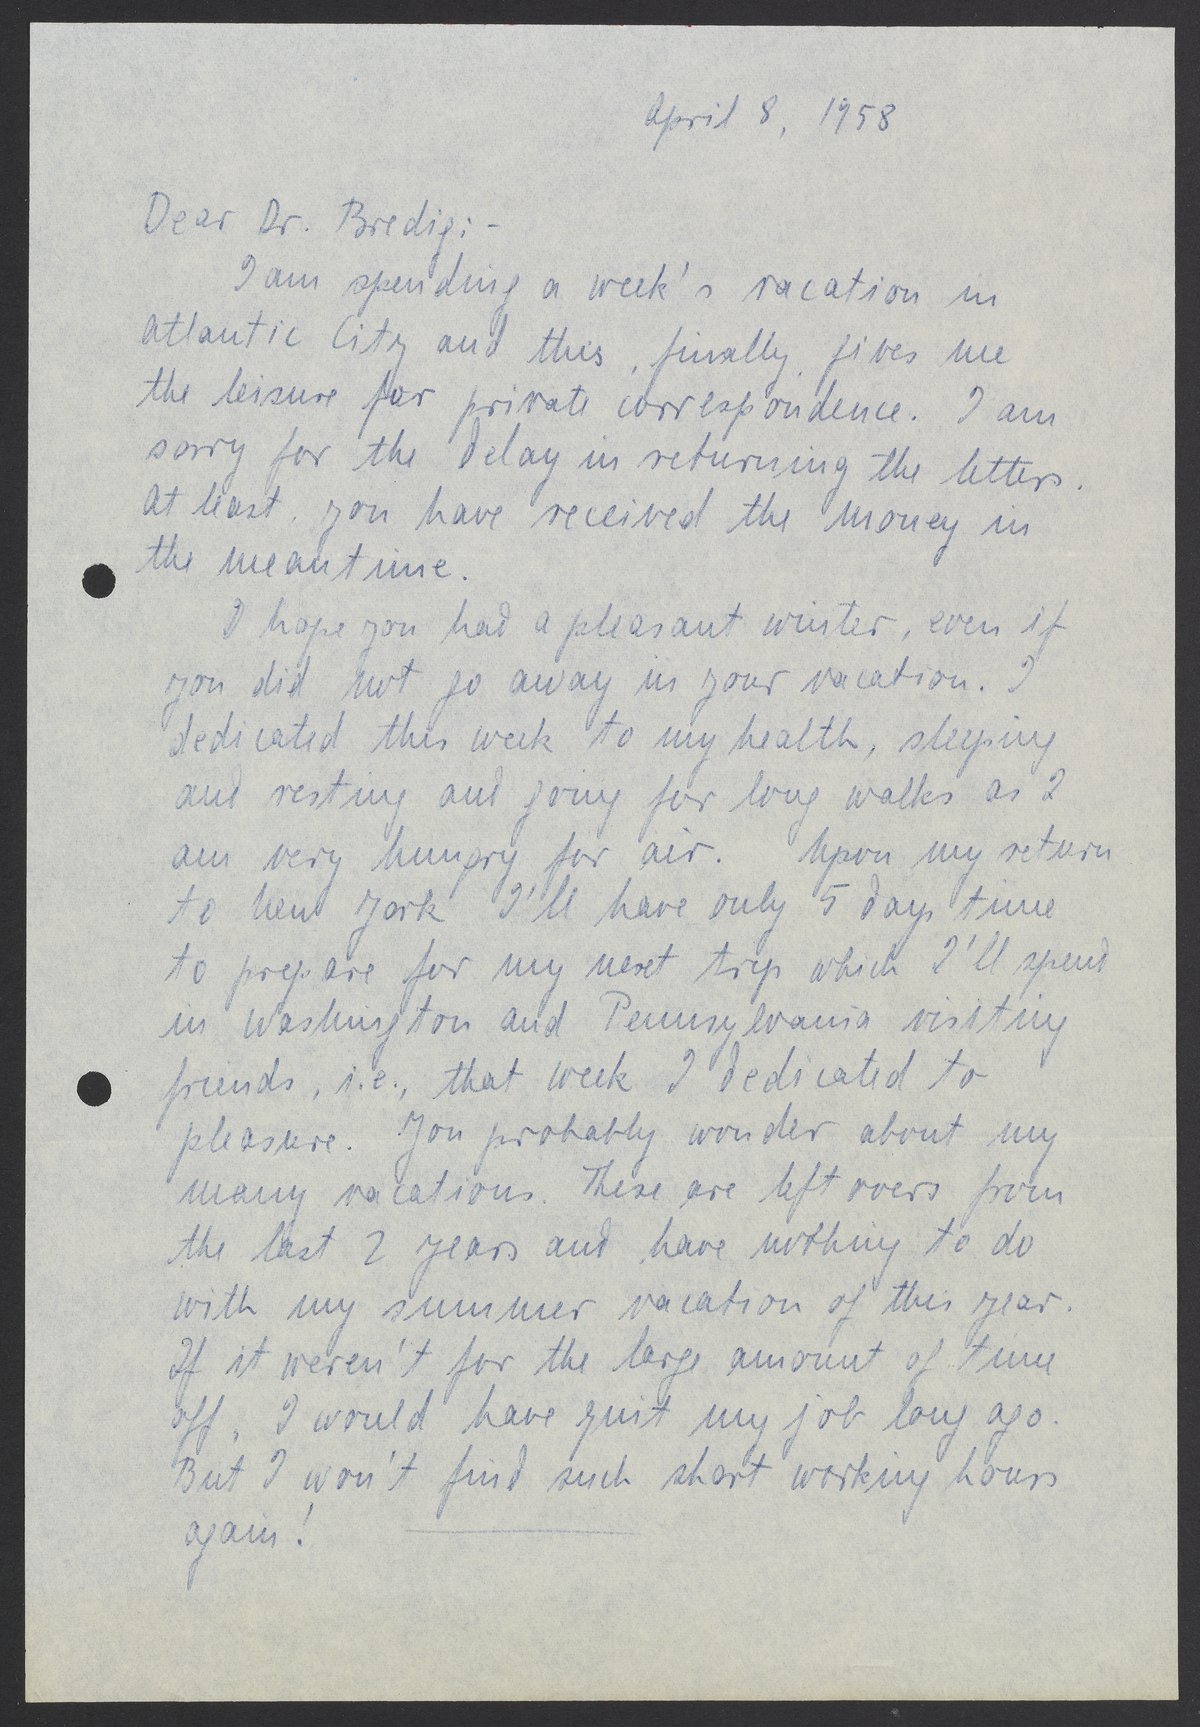 April 8, 1958
Dear Dr. Bredig:-
I am spending a week's vacation in
Atlantic City and this, finally, gives me
the leisure for private correspondence. I am
sorry for the delay in returning the letters.
At least, you have received the money in
the meantime.
I hope you had a pleasant winter, even if
you did not go away in your vacation. I
dedicated this week to my health, sleeping
and resting and going for long walks as I
am very hungry for air. Upon my return
to New York I'll have only 5 days time
to prepare for my next trip which I'll spend
in Washington and Pennsylvania visiting
friends, i.e., that week I dedicated to
pleasure. You probably wonder about my
many vacations. These are left overs from
the last 2 years and have nothing to do
with my summer vacation of this year.
If it weren't for the large amount of time
off, I would have quit my job long ago.
But I won't find such short working hours
again!